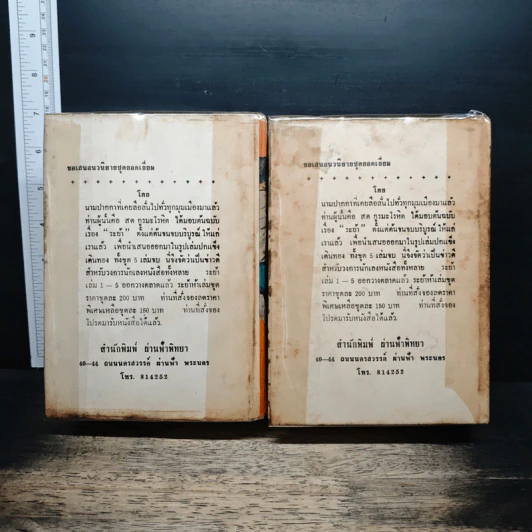 ขอเสนอนวนิยายชุดยอดเยี่ยม
โดย
นามปากกาที่เคยลือลั่นไปทั่วทุกมุมเมืองมาแล้ว
ท่านผู้นั้นคือ สด กูรมะโรหิต ได้มอบต้นฉบับ
เรื่อง "ระย้า" ตั้งแต่ต้นจนจบบริบูรณ์ ให้แก่
เราแล้ว เพื่อนำเสนอออกมาในรูปเล่มปกแข็ง
เดินทอง ทั้งชุด 5 เล่มจบ นี่จึงจัดว่าเป็นข่าวดี
สำหรับวงการนักเลงหนังสือทั้งหลาย ระย้า
เล่ม 1—5 ออกวางตลาดแล้ว ระย้าห้าเล่มชุด
ราคาชุดละ 200 บาท ท่านที่สั่งจองลดราคา
พิเศษเหลือชุดละ 150 บาท ท่านที่สั่งจอง
โปรดมารับหนังสือได้แล้ว
สำนักพิมพ์ ผ่านฟ้าพิทยา
40—44 ถนนนครสวรรค์ ผ่านฟ้า พระนคร
โทร. 814252
ขอเสนอนวนิยายชุดยอดเยี่ยม
โดย
นามปากกาที่เคยลือลั่นไปทั่วทุกมุมเมืองมาแล้ว
ท่านผู้นั้นคือ สด กูรมะโรหิต ได้มอบต้นฉบับ
เรื่อง "ระย้า" ตั้งแต่ต้นจนจบบริบูรณ์ ให้แก่
เราแล้ว เพื่อนำเสนอออกมาในรูปเล่มปกแข็ง
เดินทอง ทั้งชุด 5 เล่มจบ นี่จึงจัดว่าเป็นข่าวดี
สำหรับวงการนักเลงหนังสือทั้งหลาย ระย้า
เล่ม 1—5 ออกวางตลาดแล้ว ระย้าห้าเล่มชุด
ราคาชุดละ 200 บาท ท่านที่สั่งจองลดราคา
พิเศษเหลือชุดละ 150 บาท ท่านที่สั่งจอง
โปรดมารับหนังสือได้แล้ว
สำนักพิมพ์ ผ่านฟ้าพิทยา
40—44 ถนนนครสวรรค์ ผ่านฟ้า พระนคร
โทร. 814252